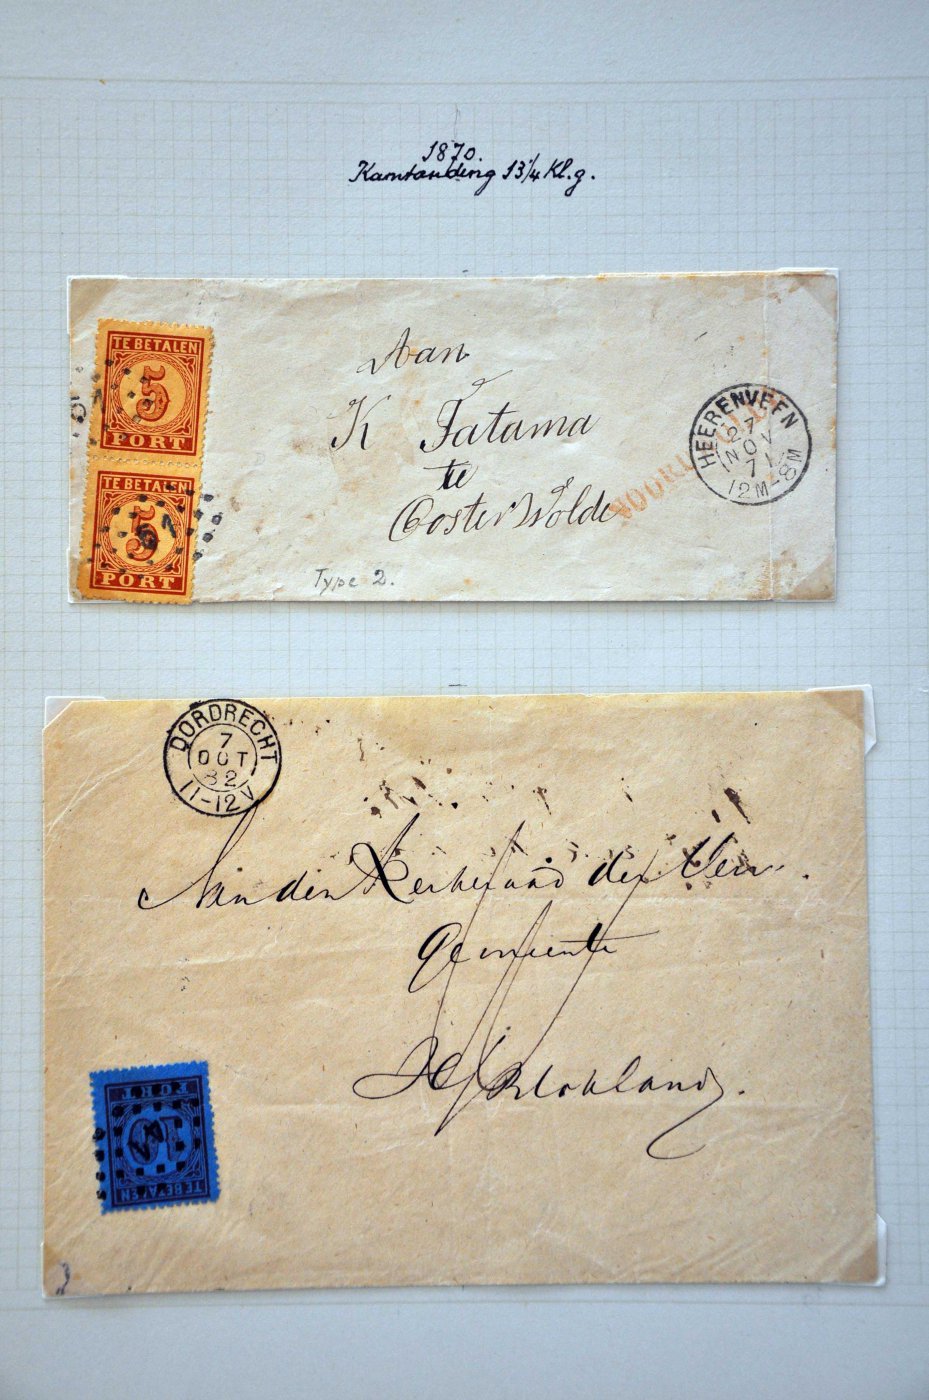 1870.
Kamtanding 13¼ Kl.g.
TE BETALEN
5
PORT
TE BETALEN
5
PORT
Aan
K Tatama
te
Oosterwolde
HEERENVEEN
27
NOV
71
12M-8M
Type 2.
DORDRECHT
7
OCT
82
11-12V
Aan den Kerkeraad der Verv.
Gemeente
Blokland.
PORT
10
TE BETALEN